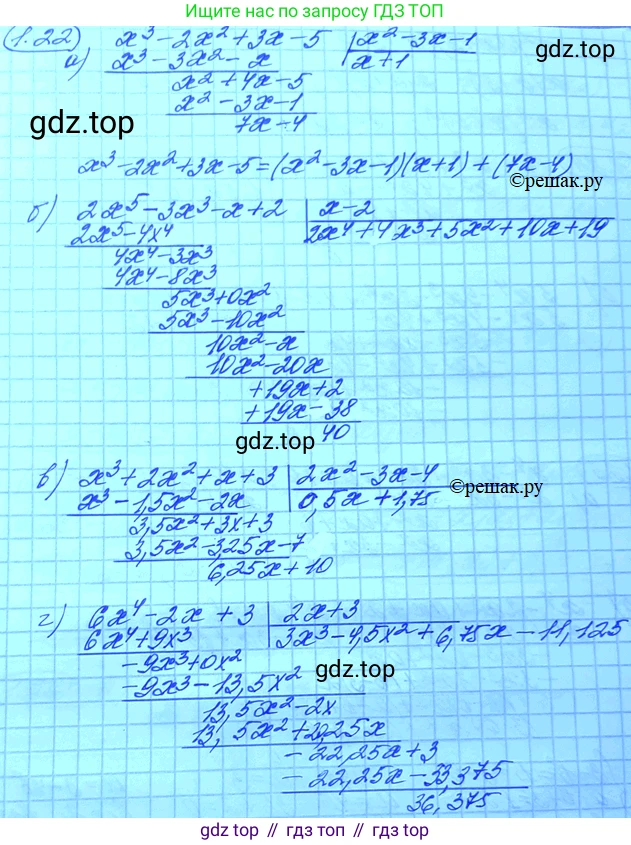 Ищите нас по запросу ГДЗ ТОП
1.22)
а) x³-2x²+3x-5 | x²-3x-1
x³-3x²-x | x+1
x²+4x-5
x²-3x-1
gdz.top
7x-4
x³-2x²+3x-5=(x²-3x-1)(x+1)+(7x-4)
©решак.ру
б) 2x⁵-3x³-x+2 | x-2
2x⁵-4x⁴ | 2x⁴+4x³+5x²+10x+19
4x⁴-3x³
4x⁴-8x³
5x³+0x²
5x³-10x²
10x²-x
10x²-20x
+19x+2
+19x-38
gdz.top 40
в) x³+2x²+x+3 | 2x²-3x-4
x³-1,5x²-2x | 0,5x+1,75
©решак.ру
3,5x²+3x+3
3,5x²-3,25x-7
6,25x+10
г) 6x⁴-2x+3 | 2x+3
6x⁴+9x³ | 3x³-4,5x²+6,75x-11,125
-9x³+0x²
gdz.top
-9x³-13,5x²
13,5x²-2x
13,5x²+20,25x
-22,25x+3
-22,25x-33,375
36,375
gdz top // гдз топ // gdz.top